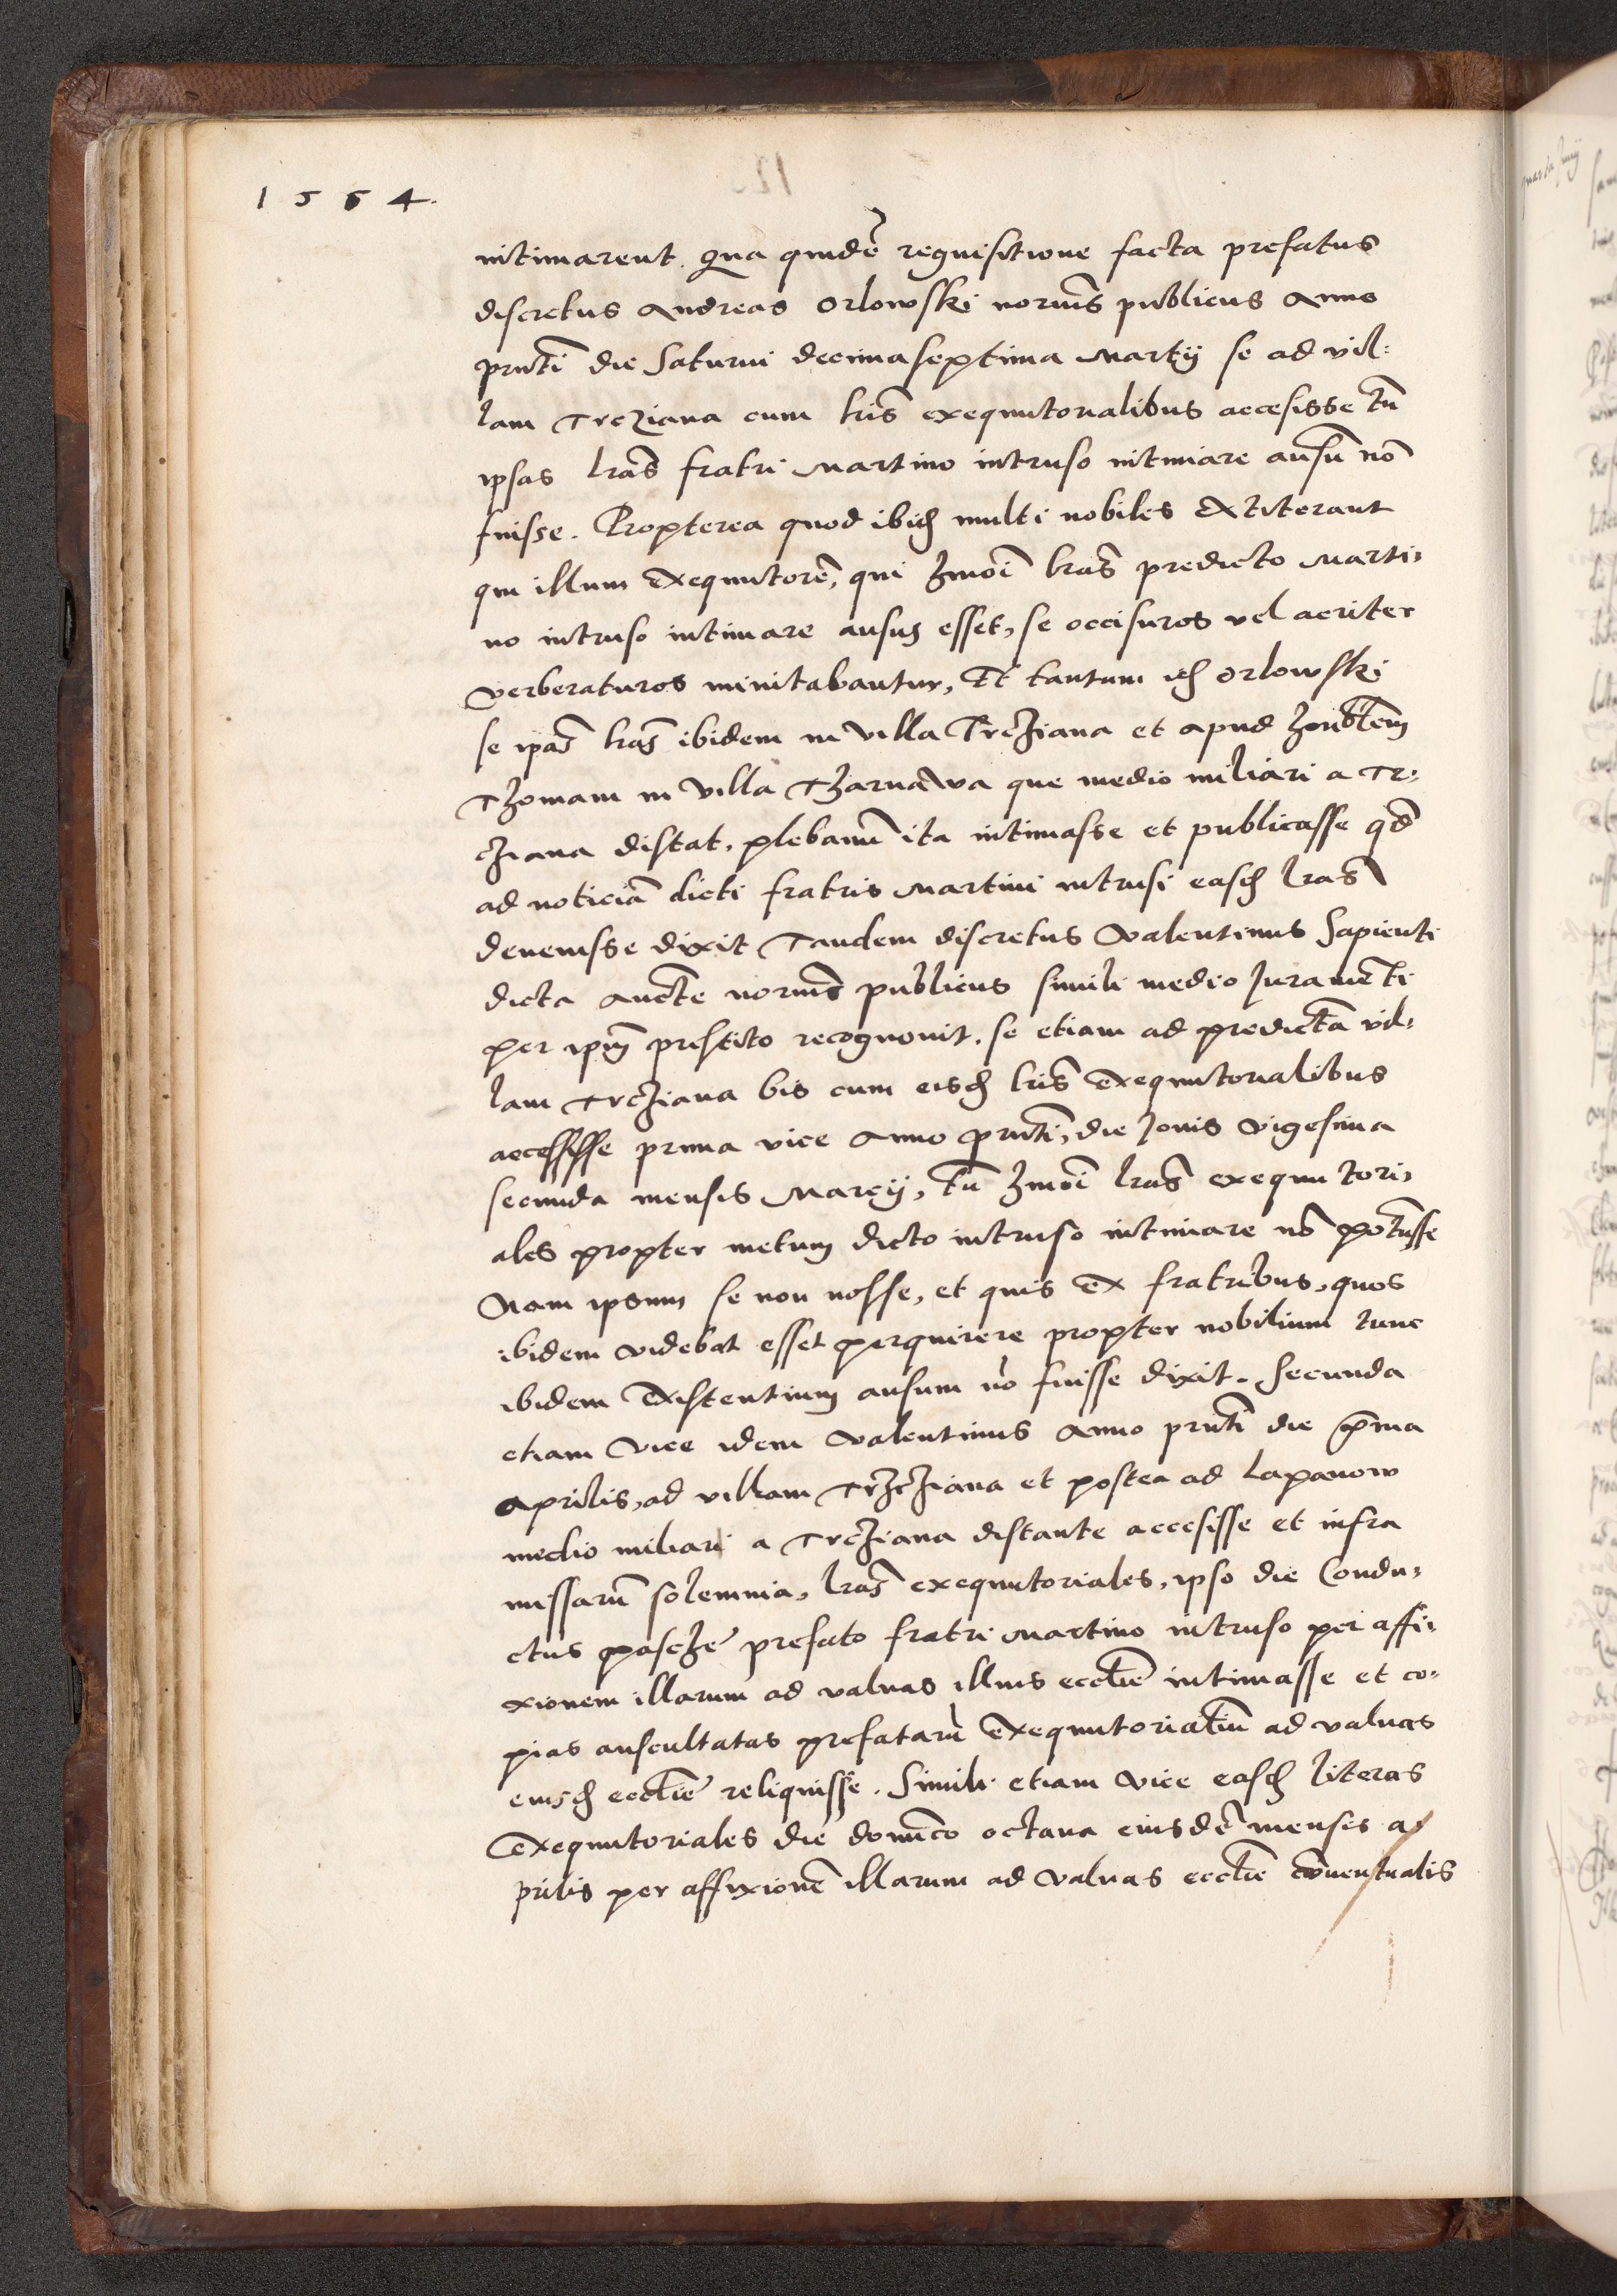 1554.
intimarent. Qua quidē requisitione facta prefatus
discretus Andreas Orlowski norius publicus Anno
prnti die Saturni decimaseptima Martij se ad vil:
lam Trcziana cum lris exequutorialibus accesisse tn̄
ipsas lras fratri Martino intruso intimare ausū nō
fuisse. Propterea quod ibid multi nobiles Extiterant
qui illum Exequutorē, qui hmōi lras predicto Marti:
no intruso intimare ausus esset, se occisuros vel acriter
verberaturos minitabantur, Et tantum id Orlowski
se ipas lras ibidem in villa Trcziana et apud
Thomam in villa Tharnawa que medio miliari a Tr:
cziana distat, plebanū ita intimasse et publicasse qd
ad noticiā dicti fratris Martini intrusi easd lras
devenisse dixit Tandem discretus Valentinus Sapienti
dicta aucte norius publicus simili medio Juramēti
per ipm prestito recognouit, se etiam ad predictā vil:
lam Trcziana bis cum eisd lris Exequutorialibus
accessisse prima vice Anno prnti, die Jouis vigesima
secunda mensis Marcij, tn̄ hmōi lras exequutori:
ales propter metum dicto intruso intimare nō potuisse
Nam ipsum se non nosse, et quis Ex fratribus, quos
ibidem videbat esset perquirere propter nobilium tunc
ibidem Existentium ausum nō fuisse dixit. Secunda
etiam vice idem Valentinus Anno prnti die p̄ma
Aprilis, ad villam Trzcziana et postea ad Lapanow
medio miliari a Trcziana distante accesisse et infra
missarū solemnia, lras exequutoriales, ipso die Condu:
ctus pasche prefato fratri Martino intruso per affi:
xionem illarum ad valuas illius ecctie intimasse et co:
pias auscultatas prefatarū Exequutorialiū ad valuas
eiusd ecctie reliquisse. Simili etiam vice easd literas
Exequutoriales die domīco octaua eiusdē mensis A
prilis per affixionē illarum ad valuas ecctie cōuentualis